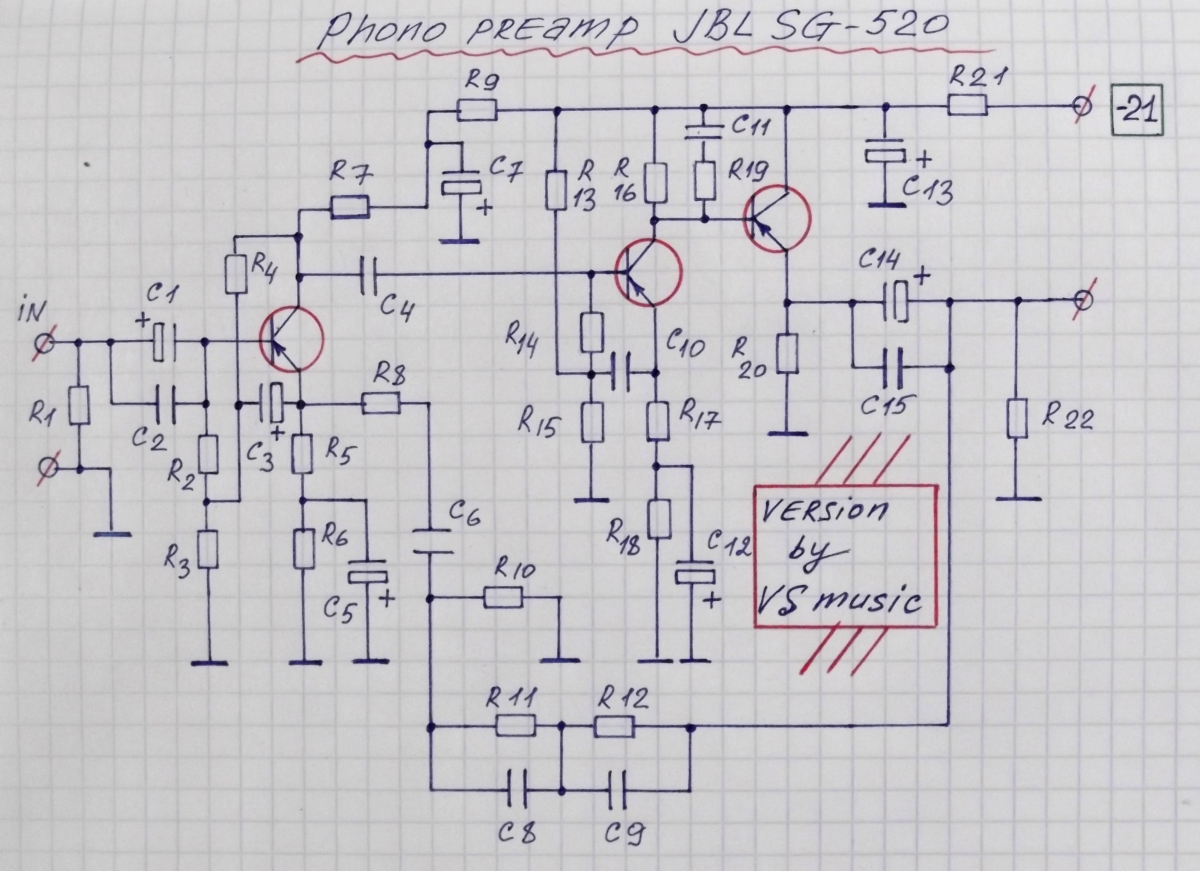 Phono PREamp JBL SG-520
R9
R21
-21
C11
R7
C7
+
R
13
R
16
R19
+
C13
R4
C4
C14
+
iN
C1
+
R14
C10
R
20
C15
R8
R1
C2
R2
C3
+
R5
R15
R17
R22
C6
R3
R6
R10
R18
C12
+
C5
+
VERsion
by
VS music
R11
R12
C8
C9